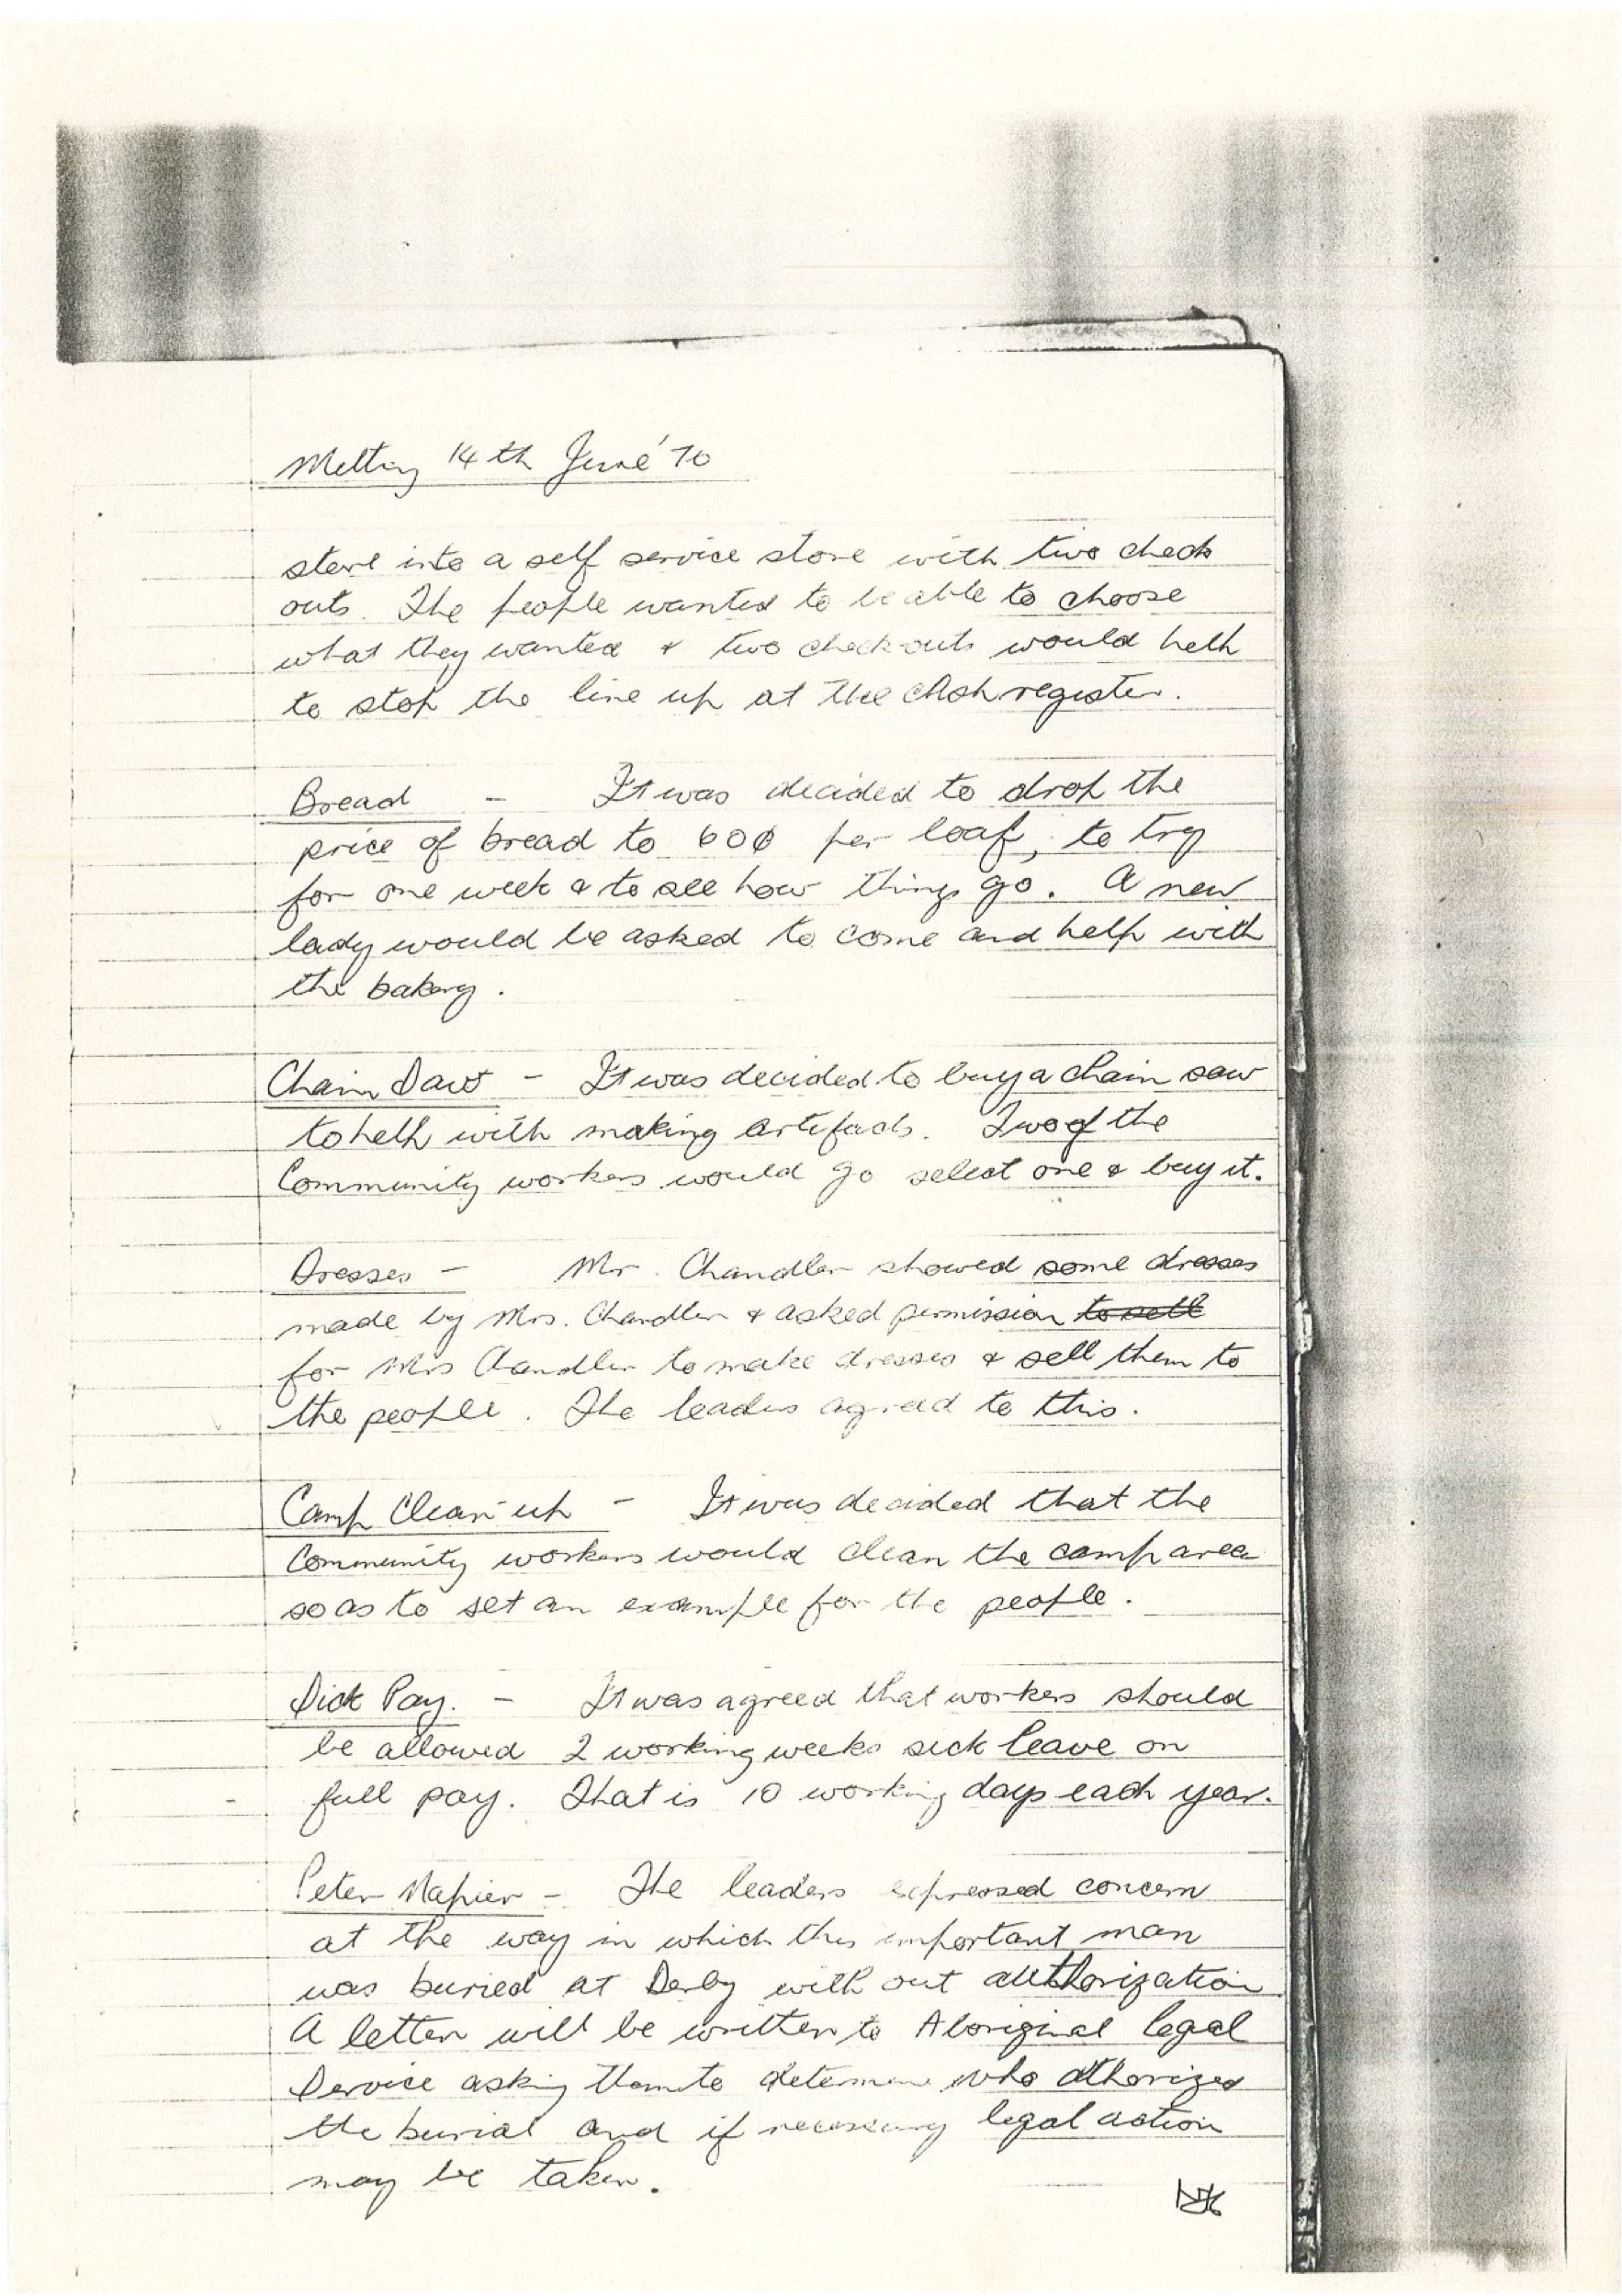 Meeting 14th June '70
store into a self service store with two check
outs. The people wanted to be able to choose
what they wanted & two check-outs would help
to stop the line up at the cash register.
Bread - It was decided to drop the
price of bread to 60¢ per loaf, to try
for one week & to see how things go. A new
lady would be asked to come and help with
the bakery.
Chain Saw - It was decided to buy a chain saw
to help with making artifacts. Two of the
Community workers would go select one & buy it.
Dresses - Mr. Chandler showed some dresses
made by Mrs. Chandler & asked permission to sell
for Mrs Chandler to make dresses & sell them to
the people. The leaders agreed to this.
Camp Clean-up - It was decided that the
Community workers would clean the camp area
so as to set an example for the people.
Sick Pay. - It was agreed that workers should
be allowed 2 working weeks sick leave on
full pay. That is 10 working days each year.
Peter Napier - The leaders expressed concern
at the way in which this important man
was buried at Derby without authorization
A letter will be written to Aboriginal Legal
Service asking them to determine who athorized
the burial and if necessary legal action
may be taken.